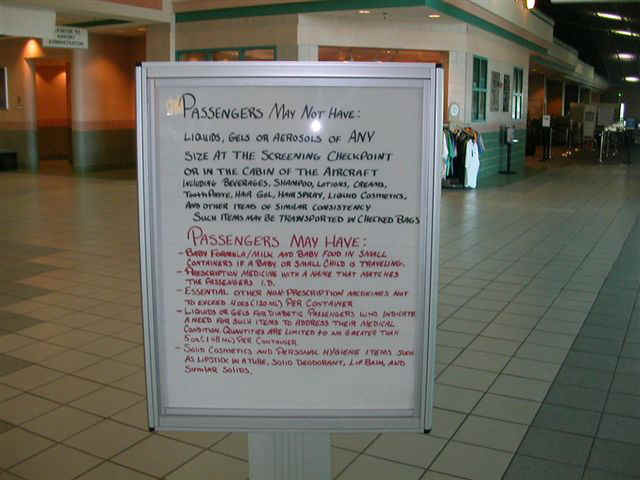 Passengers May Not Have:
Liquids, Gels or Aerosols of ANY
Size at the Screening Checkpoint
or in the Cabin of the Aircraft
Including Beverages, Shampoo, Lotions, Creams,
Toothpaste, Hair Gel, Hair Spray, Liquid Cosmetics,
And other items of similar consistency
Such items may be transported in checked bags
Passengers May Have:
- Baby Formula/Milk and Baby Food in Small
Containers if a Baby or Small Child is Traveling.
- Prescription Medicine with a Name that matches
the Passengers I.D.
- Essential other Non-Prescription medicines not
to exceed 4 ozs (120 ml) Per Container
- Liquids or Gels for Diabetic Passengers who indicate
a need for such items to address their medical
Condition. Quantities are limited to no greater than
5 oz. (148 ml) Per Container
- Solid Cosmetics and Personal Hygiene Items such
as Lipstick in a tube, Solid Deodorant, Lip Balm, and
Similar Solids.